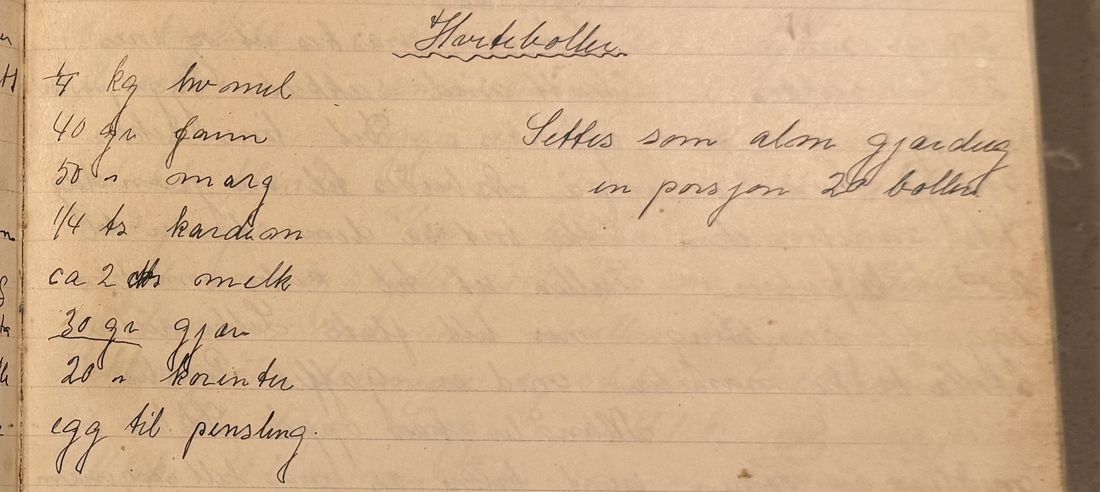 Hveteboller
kg hv mel
40 gr farin
50 " marg
1/4 ts kardem
ca 2 melk
30 gr gjær
20 " korenter
egg til pensling.
Settes som alm gjærdeig
en porsjon 20 boller